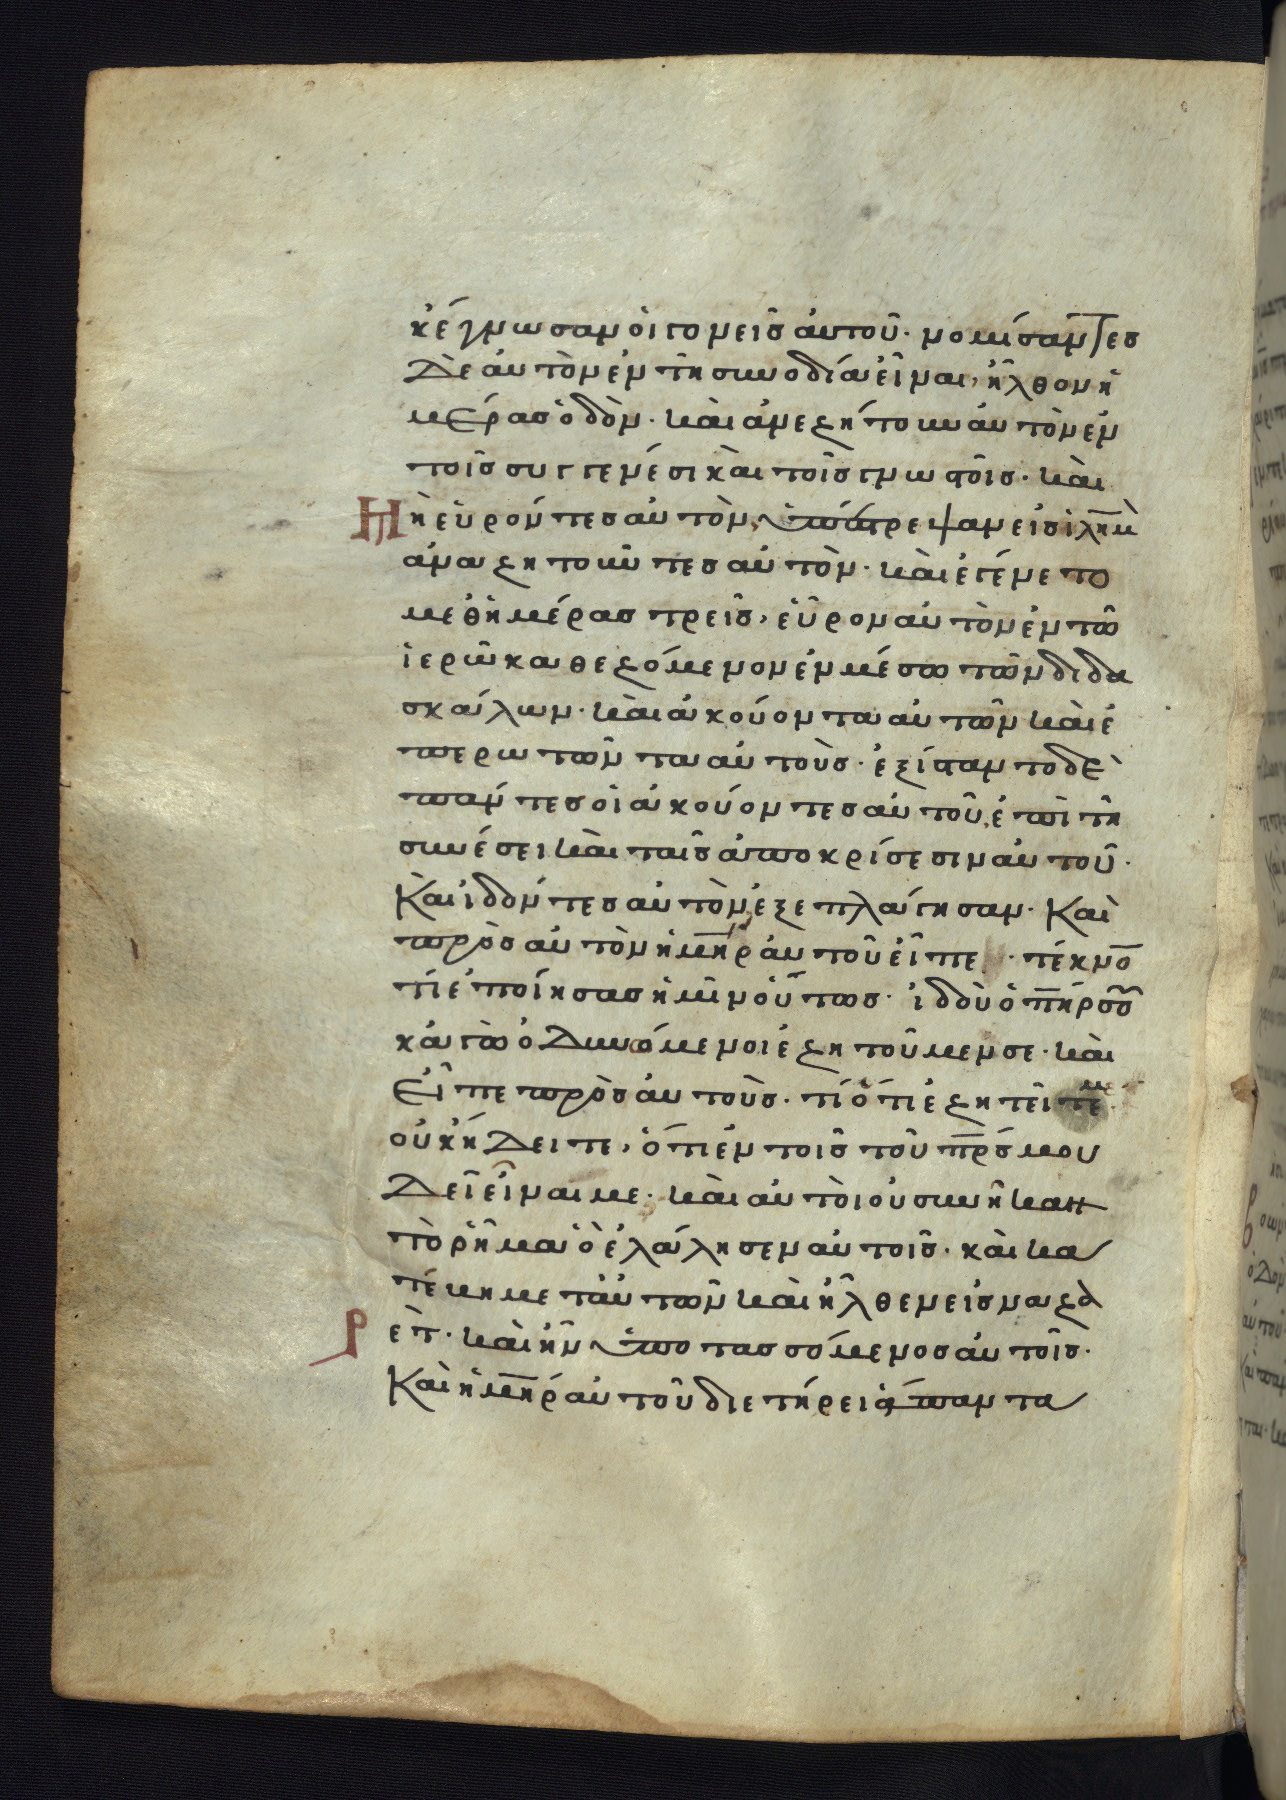 κ ἔγνωσαν οἱ γονεῖς αὐτοῦ· νομίσαντες
δὲ αὐτὸν ἐν τῆ συνοδία εἶναι, ἦλθον ἡ
μέρας ὁδὸν· καὶ ἀνεζήτουν αὐτὸν ἐν
τοῖς συγγενέσι καὶ τοῖς γνωστοῖς· καὶ
μὴ εὑρόντες αὐτὸν, ὑπέστρεψαν εἰς ἱλη̅μ
ἀναζητοῦντες αὐτὸν· καὶ ἐγένετο
μεθ ἡμέρας τρεῖς, εὗρον αὐτὸν ἐν τῶ
ἱερῶ καθεζόμενον ἐν μέσω τῶν διδα
σκάλων· καὶ ἀκούοντα αὐτῶν καὶ ἐ
περωτῶντα αὐτοὺς· ἐξίσταντο δὲ
πάντες οἱ ἀκούοντες αὐτοῦ, ἐπὶ τῆ
συνέσει καὶ ταῖς ἀποκρίσεσιν αὐτοῦ·
Καὶ ἰδόντες αὐτὸν ἐξεπλάγησαν· Καὶ
πρὸς αὐτὸν ἡ μ̅η̅ρ αὐτοῦ εἶπε· τέκνο̅
τί ἐποίησας ἡμῖν οὕτως· ἰδοὺ ὁ π̅η̅ρ σου
κἀγὼ ὀδυνόμενοι ἐζητοῦμεν σε· καὶ
εἶπε πρὸς αὐτοὺς· τί ὅτι ἐζητεῖτέ μ
οὐκ ἤδειτε, ὅτι ἐν τοῖς τοῦ π̅ρ̅ς μου
δεῖ εἶναι με· καὶ αὐτοὶ οὐ συνῆκαν
τὸ ῥῆμα ὃ ἐλάλησεν αὐτοῖς· καὶ κα
τέβη μετ αὐτῶν καὶ ἦλθεν εἰς ναζα
ρὲτ· καὶ ἦν ὑποτασσόμενος αὐτοῖς·
Καὶ ἡ μ̅η̅ρ αὐτοῦ διετήρει ἅπαντα